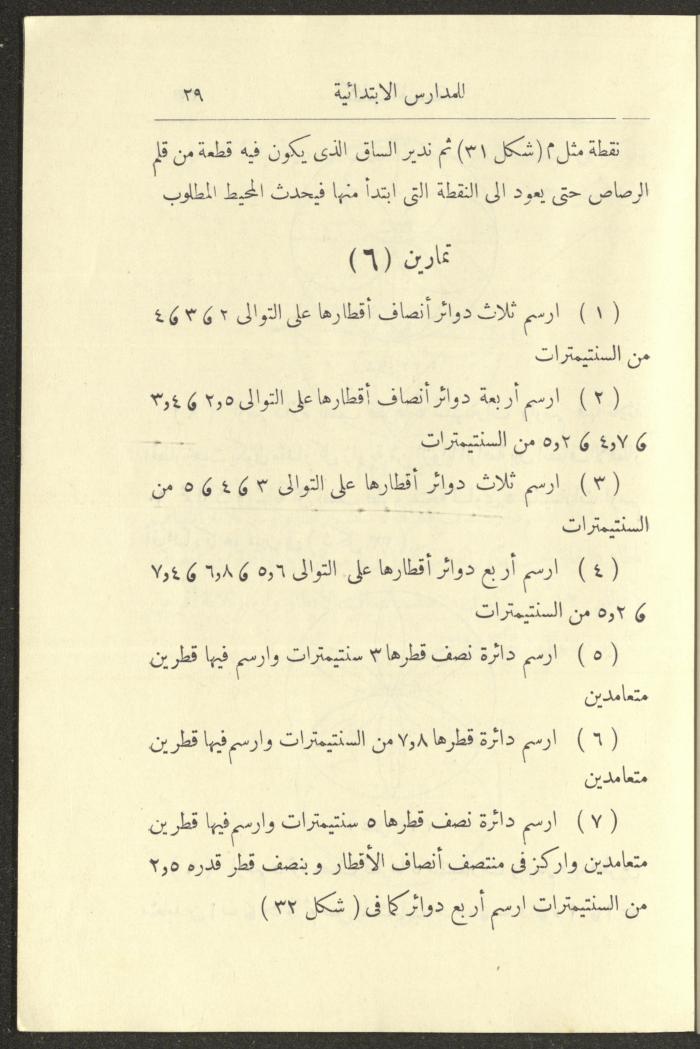 للمدارس الابتدائية ٢٩
نقطة مثل م (شكل ٣١) ثم ندير الساق الذى يكون فيه قطعة من قلم
الرصاص حتى يعود الى النقطة التى ابتدأ منها فيحدث المحيط المطلوب
تمارين (٦)
(١) ارسم ثلاث دوائر أنصاف أقطارها على التوالى ٢ و ٣ و ٤
من السنتيمترات
(٢) ارسم أربعة دوائر أنصاف أقطارها على التوالى ٢٫٥ و ٣٫٤
و ٤٫٧ و ٥٫٢ من السنتيمترات
(٣) ارسم ثلاث دوائر أقطارها على التوالى ٣ و ٤ و ٥ من
السنتيمترات
(٤) ارسم أربع دوائر أقطارها على التوالى ٥٫٦ و ٦٫٨ و ٧٫٤
و ٥٫٢ من السنتيمترات
(٥) ارسم دائرة نصف قطرها ٣ سنتيمترات وارسم فيها قطرين
متعامدين
(٦) ارسم دائرة قطرها ٧٫٨ من السنتيمترات وارسم فيها قطرين
متعامدين
(٧) ارسم دائرة نصف قطرها ٥ سنتيمترات وارسم فيها قطرين
متعامدين واركز فى منتصف أنصاف الأقطار وبنصف قطر قدره ٢٫٥
من السنتيمترات ارسم أربع دوائر كما فى (شكل ٣٢)